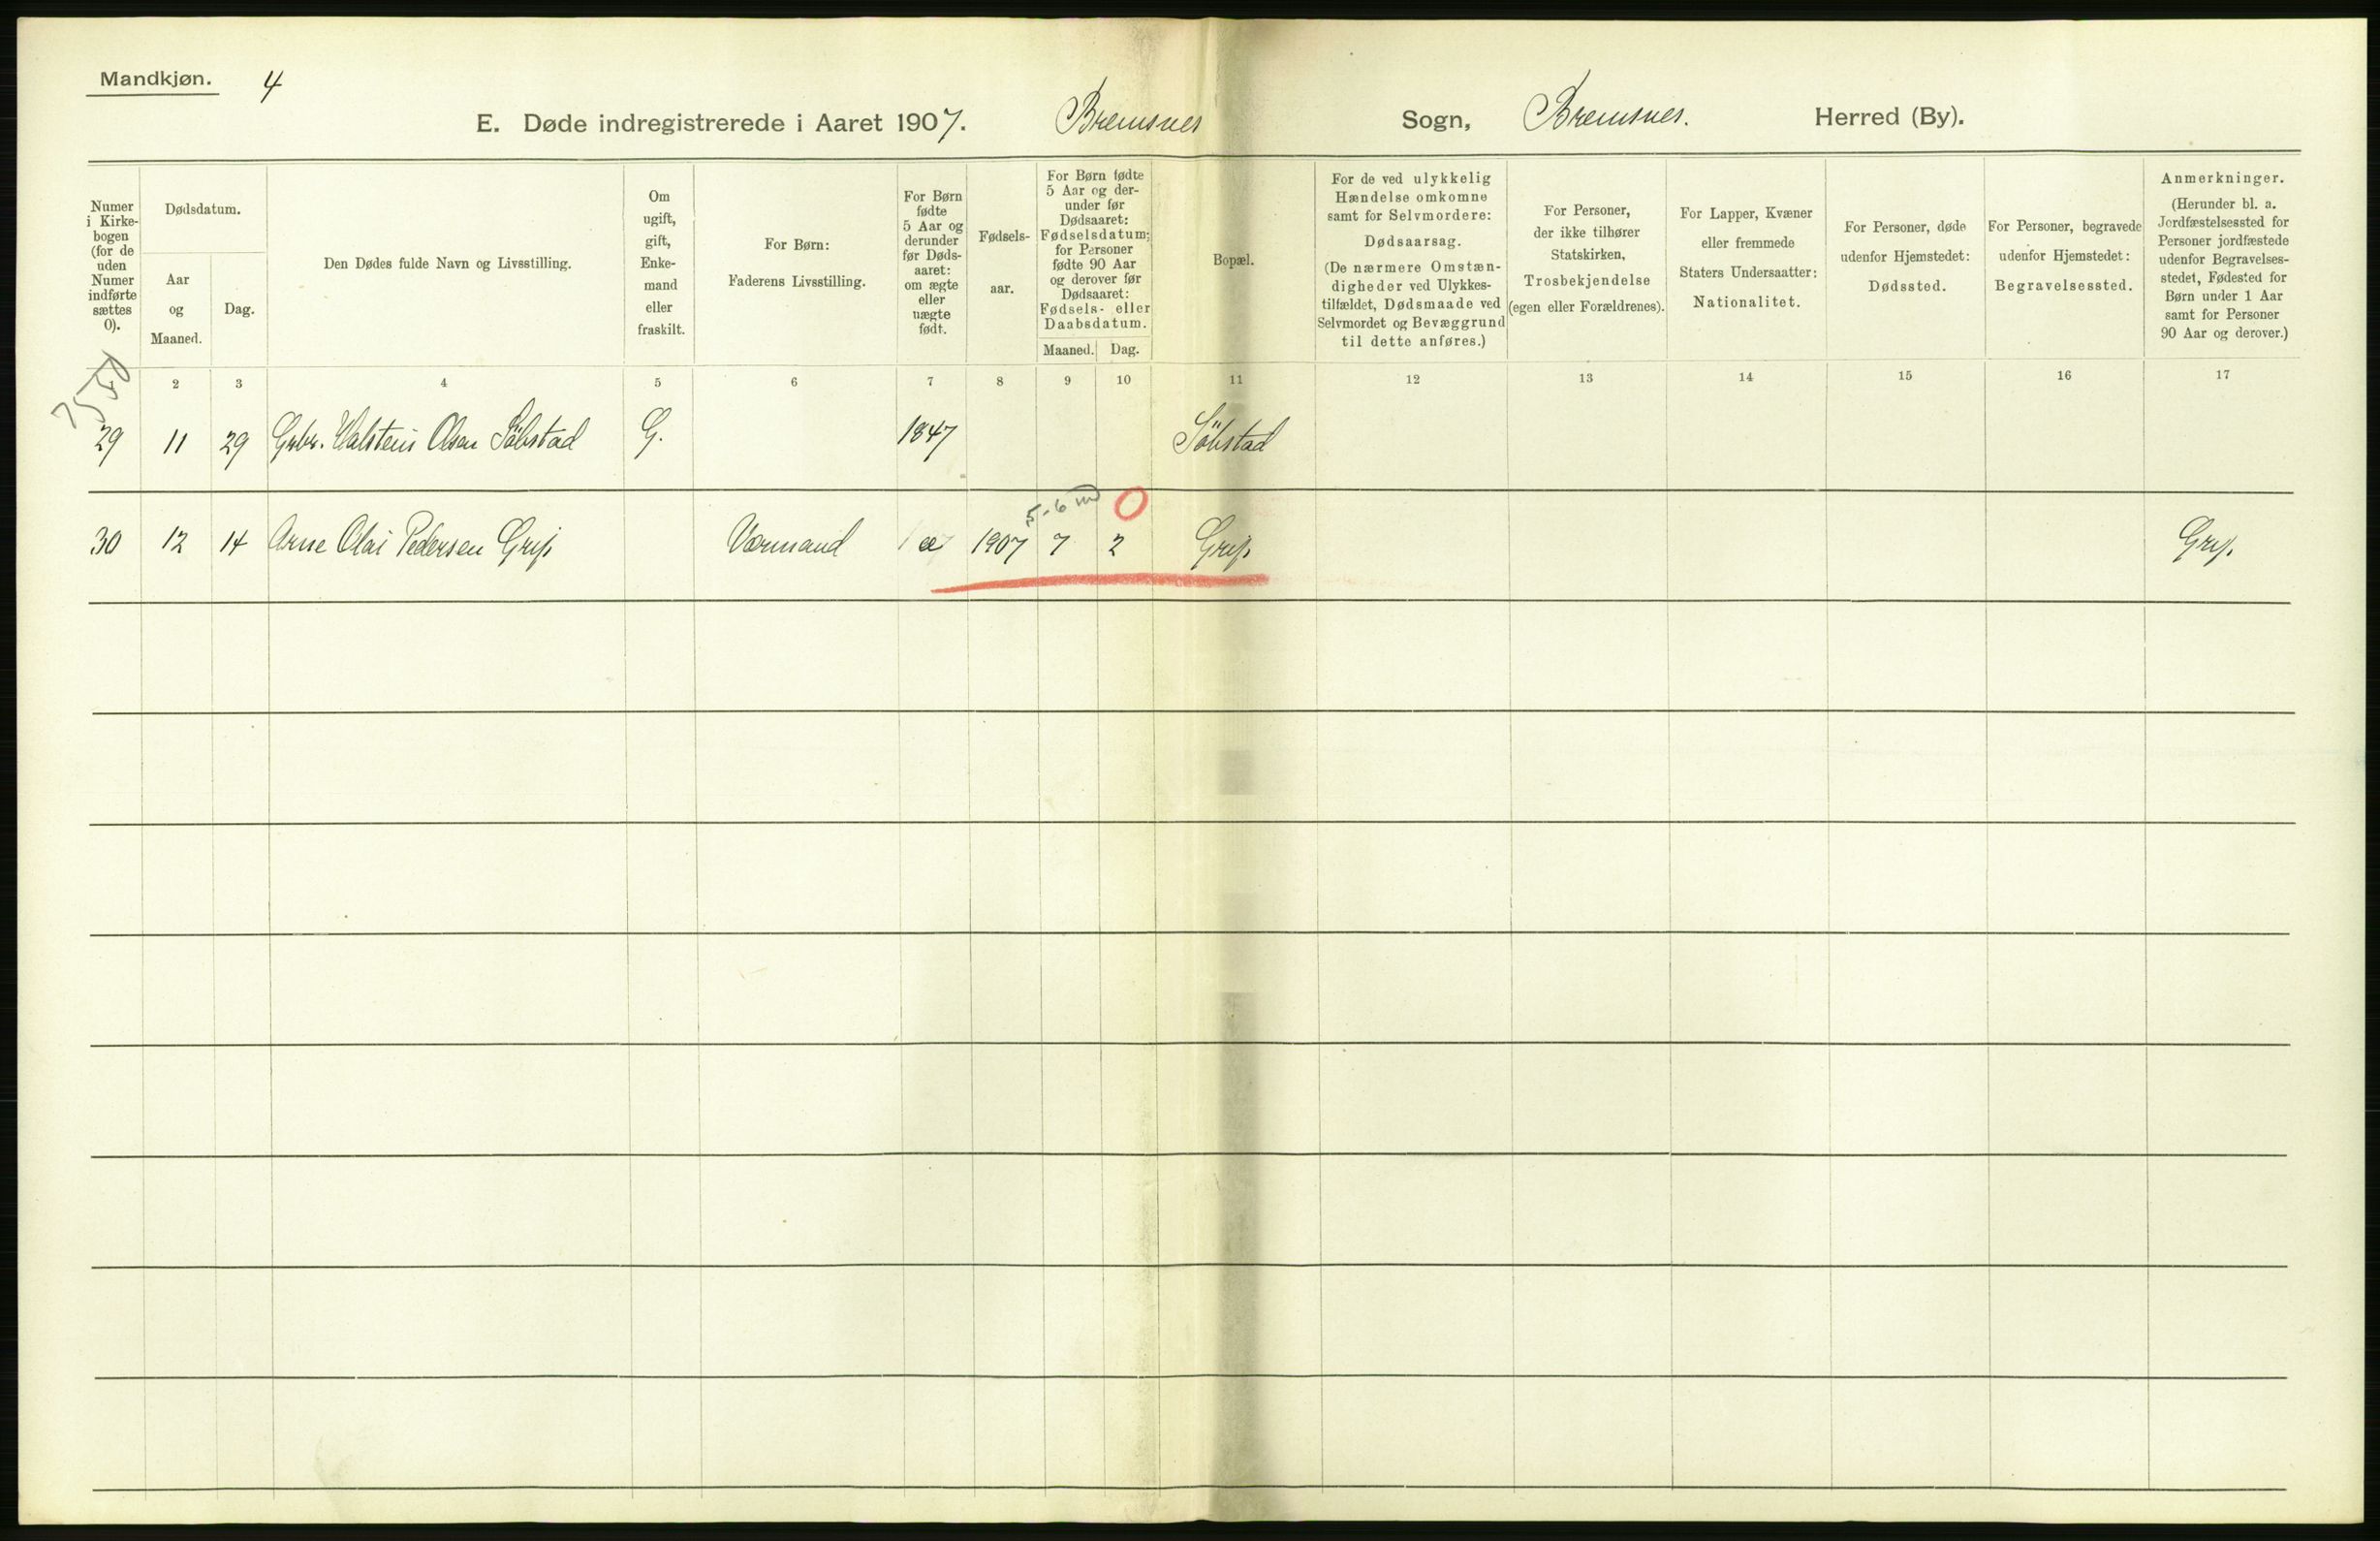 Mandkjøn. 4
E. Døde indregistrerede i Aaret 1907. Bremsnes Sogn, Bremsnes. Herred (By).
Numer
i Kirke-
bogen
(for de
uden
Numer
indførte
sættes
0).
Dødsdatum.
Aar
og
Maaned.
Dag.
Den Dødes fulde Navn og Livsstilling.
Om
ugift,
gift,
Enke-
mand
eller
fraskilt.
For Børn:
Faderens Livsstilling.
For Børn
fødte
5 Aar og
derunder
før Døds-
aaret:
om ægte
eller
uægte
født.
Fødsels-
aar.
For Børn fødte
5 Aar og der-
under før
Dødsaaret:
Fødselsdatum;
for Personer
fødte 90 Aar
og derover før
Dødsaaret:
Fødsels- eller
Daabsdatum.
Maaned. Dag.
Bopæl.
For de ved ulykkelig
Hændelse omkomne
samt for Selvmordere:
Dødsaarsag.
(De nærmere Omstæn-
digheder ved Ulykkes-
tilfældet, Dødsmaade ved
Selvmordet og Bevæggrund
til dette anføres.)
For Personer,
der ikke tilhører
Statskirken,
Trosbekjendelse
(egen eller Forældrenes).
For Lapper, Kvæner
eller fremmede
Staters Undersaatter:
Nationalitet.
For Personer, døde
udenfor Hjemstedet:
Dødssted.
For Personer, begravede
udenfor Hjemstedet:
Begravelsessted.
Anmerkninger.
(Herunder bl. a.
Jordfæstelsessted for
Personer jordfæstede
udenfor Begravelses-
stedet, Fødested for
Børn under 1 Aar
samt for Personer
90 Aar og derover.)
2 3 4 5 6 7 8 9 10 11 12 13 14 15 16 17
29 11 29 Grbr. Halstein Olsen Söbstad G. 1847 Söbstad
5-6 m 0
30 12 14 Arne Olai Pedersen Grip Værmand æ 1907 7 2 Grip Grip.